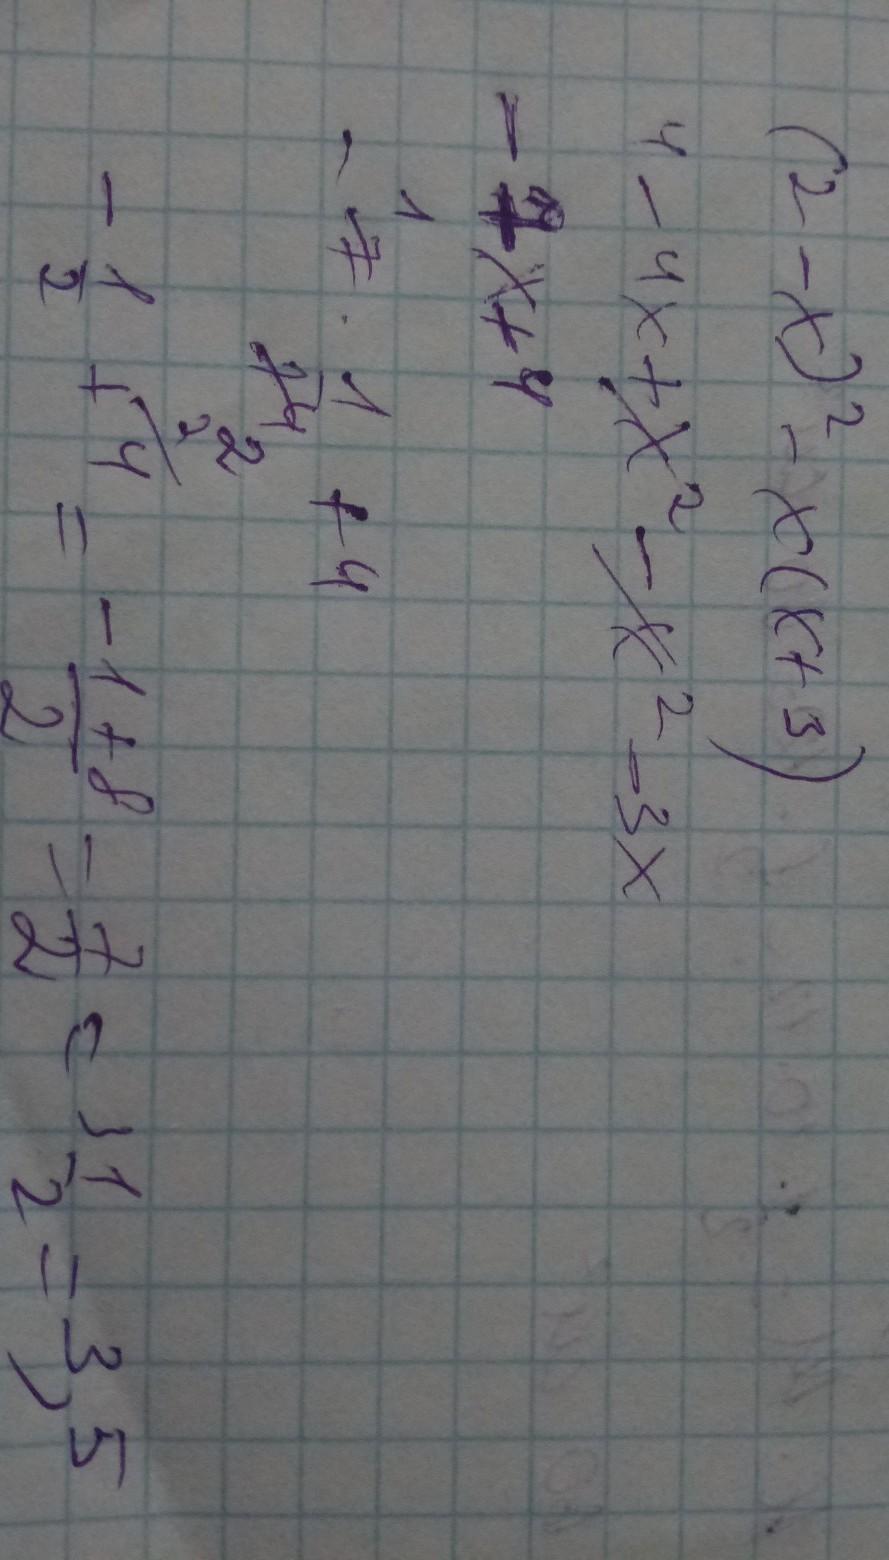 (2-x)² - x(x+3)
4 - 4x + x² - x² - 3x
- 7x + 4
- 7 · 1/14 + 4
- 1/2 + 4 = -1+8/2 = 7/2 = 3 1/2 = 3,5